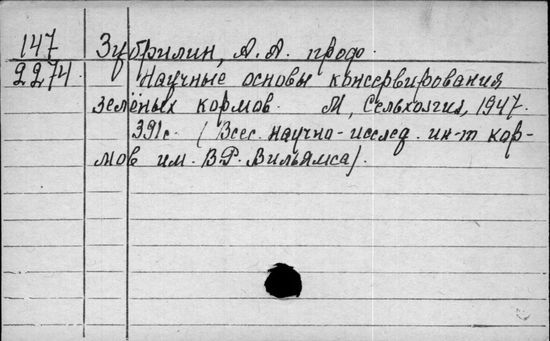 147 Зубрилин, А.А. проф.
2274 Научные основы консервирования
зелёных кормов. М, Сельхозгиз, 1947.
391с. (Всес. научно-исслед. ин-т кор-
мов им. В.Р. Вильямса).